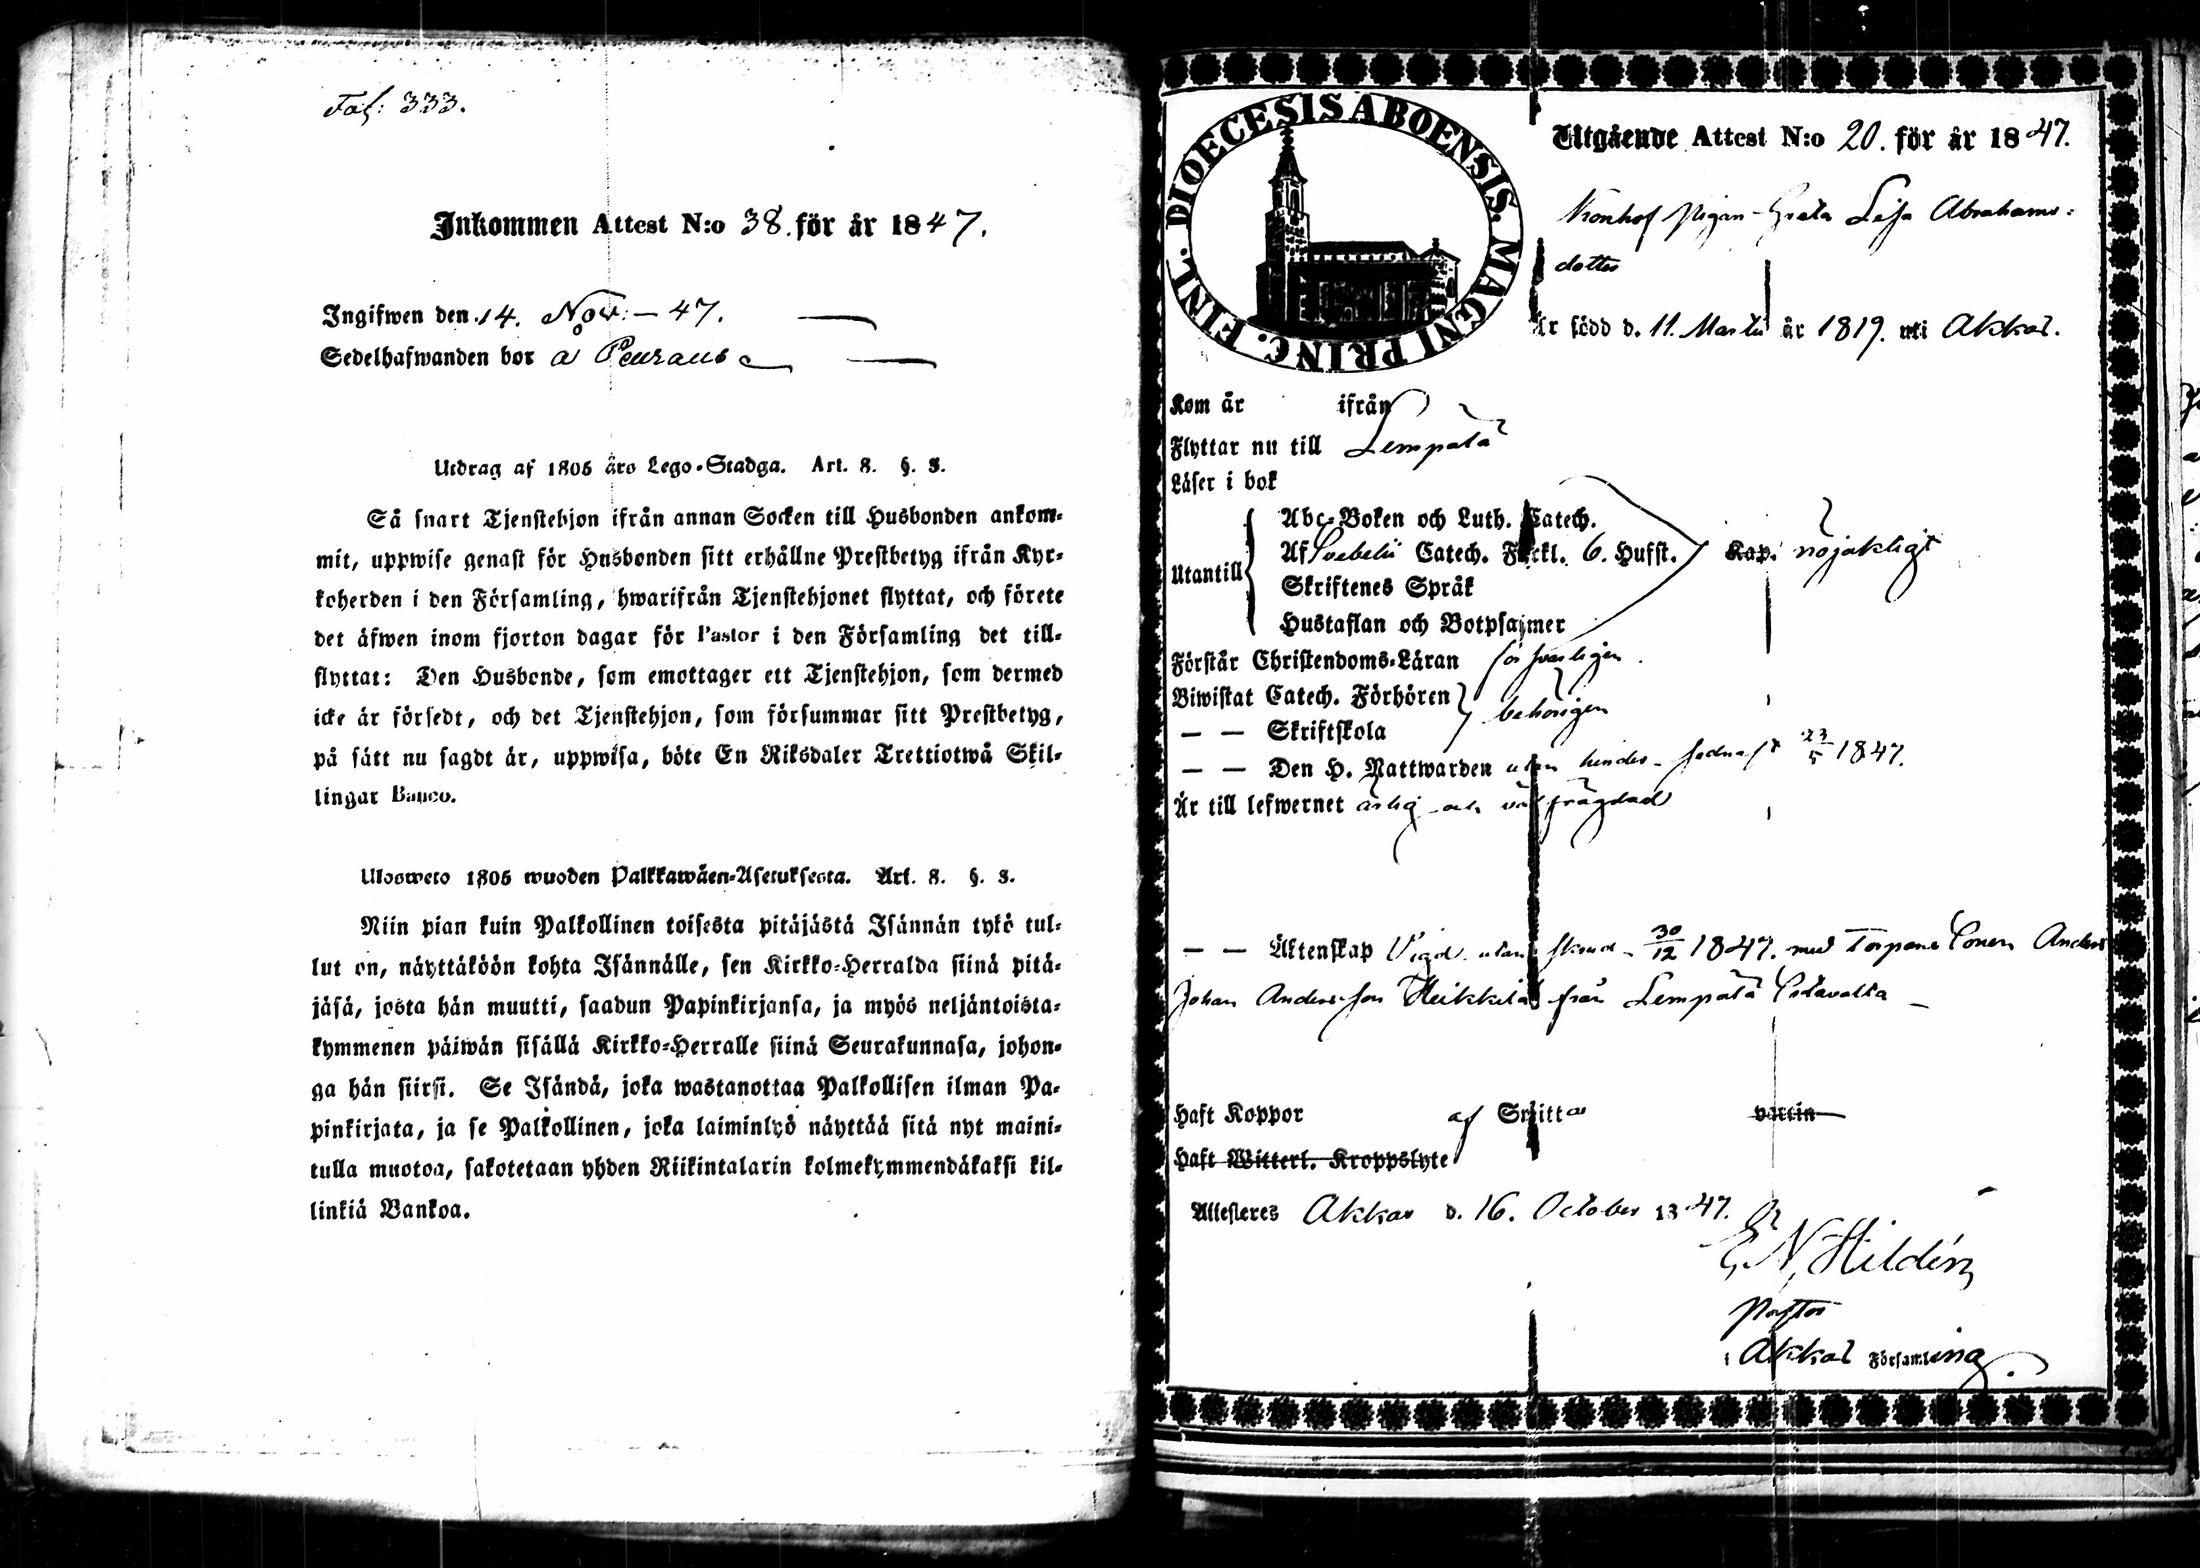 Fol: 333.
Inkommen Attest N:o 38. för år 1847.
Ingifwen den 14. Nov: – 47.
Sedelhafwanden bor å Peuraus
Utdrag af 1805 års Lego-Stadga. Art. 8. §. 8.
Så snart Tjenstehjon ifrån annan Socken till Husbonden ankom-
mit, uppwise genast för Husbonden sitt erhållne Prestbetyg ifrån Kyr-
koherden i den Församling, hwarifrån Tjenstehjonet flyttat, och förete
det äfwen inom fjorton dagar för Pastor i den Församling det till-
flyttat: Den Husbonde, som emottager ett Tjenstehjon, som dermed
icke är försedt, och det Tjenstehjon, som försummar sitt Prestbetyg,
på sätt nu sagdt är, uppwisa, böte En Riksdaler Trettiotwå Skil-
lingar Banco.
Ulosweto 1805 wuoden Palkkawäen-Asetuksesta. Art. 8. §. 8.
Niin pian kuin Palkollinen toisesta pitäjästä Isännän tykö tul-
lut on, näyttäköön kohta Isännälle, sen Kirkko-Herralda siinä pitä-
jäsä, josta hän muutti, saadun Papinkirjansa, ja myös neljäntoista-
kymmenen päiwän sisällä Kirkko-Herralle siinä Seurakunnasa, johon-
ga hän siirsi. Se Isändä, joka wastanottaa Palkollisen ilman Pa-
pinkirjata, ja se Palkollinen, joka laiminlyö näyttää sitä nyt maini-
tulla muotoa, sakotetaan yhden Riikintalarin kolmekymmendäkaksi kil-
linkiä Bankoa.
DIOECESIS ABOENSIS. MAGNI PRINC. FINL.
Utgående Attest N:o 20. för år 1847.
Pigan Greta Lisa Abrahams-
dotter
Är född d. 11. Martii år 1819. uti Akkas.
Kom år ifrån
Flyttar nu till Lempälä
Läser i bok
Abc-Boken och Luth. Catech.
Utantill Af Svebelii Catech. Förkl. 6. Hufst. Kap. nöjaktigt
Skriftenes Språk
Hustaflan och Botpsalmer
Förstår Christendoms-Läran försvarligen.
Biwistat Catech. Förhören behörigen
— — Skriftskola
— — Den H. Nattwarden utan hinder – sednast 23/5 1847.
Är till lefwernet ärlig och välfrägdad
— — Äktenskap Vigd utan 30/12 1847. med Torpare Sonen Anders
Johan Andersson Heikkilä från Lempälä
Haft Koppor af Smitta vaccin
Haft Witterl. Kroppslyte
Attesteras Akkas d. 16. October 1847.
E N Hildén
Pastor
i Akkas Församling.